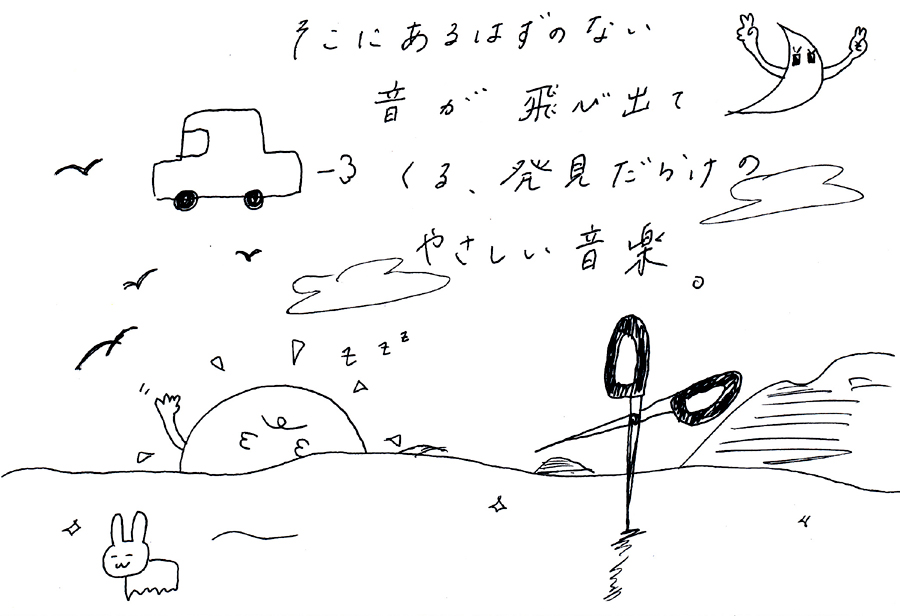 そこにあるはずのない
音が飛び出て
くる、発見だらけの
やさしい音楽。
z z z